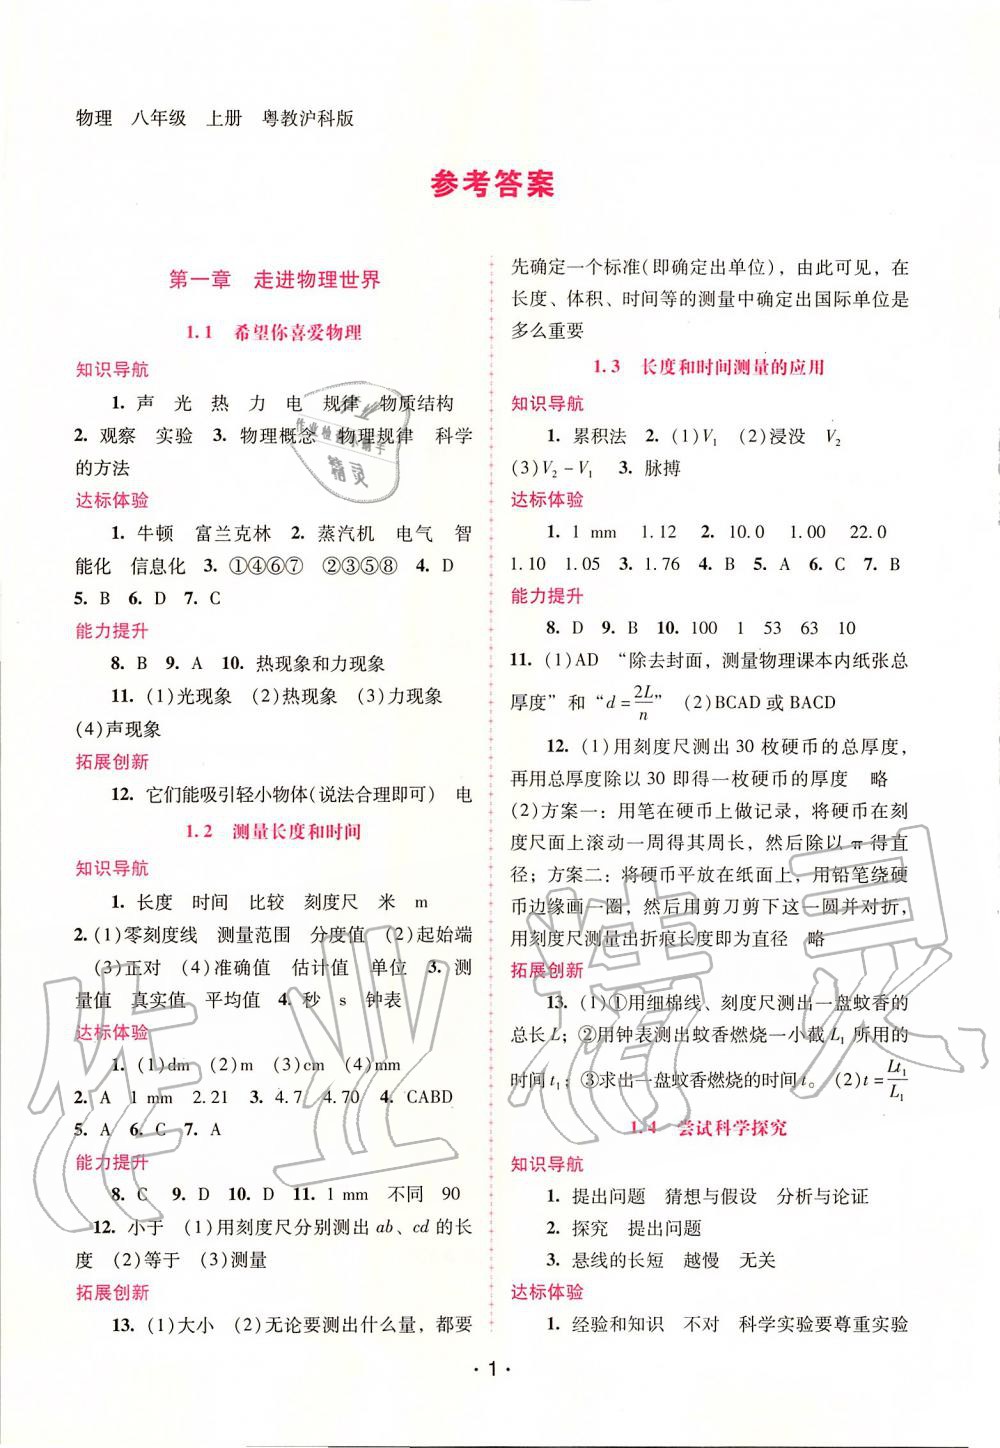 物理　八年级　上册　粤教沪科版
参考答案
第一章　走进物理世界
1.1　希望你喜爱物理
知识导航
1. 声　光　热　力　电　规律　物质结构
2. 观察　实验　3. 物理概念　物理规律　科学
的方法
达标体验
1. 牛顿　富兰克林　2. 蒸汽机　电气　智
能化　信息化　3. ①④⑥⑦　②③⑤⑧　4. D
5. B　6. D　7. C
能力提升
8. B　9. A　10. 热现象和力现象
11. (1)光现象　(2)热现象　(3)力现象
(4)声现象
拓展创新
12. 它们能吸引轻小物体(说法合理即可)　电
1.2　测量长度和时间
知识导航
1. 长度　时间　比较　刻度尺　米　m
2. (1)零刻度线　测量范围　分度值　(2)起始端
(3)正对　(4)准确值　估计值　单位　3. 测
量值　真实值　平均值　4. 秒　s　钟表
达标体验
1. (1)dm　(2)m　(3)cm　(4)mm
2. A　1 mm　2.21　3. 4.7　4.70　4. CABD
5. A　6. C　7. A
能力提升
8. C　9. D　10. D　11. 1 mm　不同　90
12. 小于　(1)用刻度尺分别测出 ab、cd 的长
度　(2)等于　(3)测量
拓展创新
13. (1)大小　(2)无论要测出什么量，都要
先确定一个标准(即确定出单位)，由此可见，在
长度、体积、时间等的测量中确定出国际单位是
多么重要
1.3　长度和时间测量的应用
知识导航
1. 累积法　2. (1)V₁　(2)浸没　V₂
(3)V₂－V₁　3. 脉搏
达标体验
1. 1 mm　1.12　2. 10.0　1.00　22.0
1.10　1.05　3. 1.76　4. B　5. A　6. C　7. B
能力提升
8. D　9. B　10. 100　1　53　63　10
11. (1)AD　“除去封面，测量物理课本内纸张总
厚度”和“d=2L/n”　(2)BCAD 或 BACD
12. (1)用刻度尺测出 30 枚硬币的总厚度，
再用总厚度除以 30 即得一枚硬币的厚度　略
(2)方案一：用笔在硬币上做记录，将硬币在刻
度尺面上滚动一周得其周长，然后除以 π 得直
径；方案二：将硬币平放在纸面上，用铅笔绕硬
币边缘画一圈，然后用剪刀剪下这一圆并对折，
用刻度尺测量出折痕长度即为直径　略
拓展创新
13. (1)①用细棉线、刻度尺测出一盘蚊香的
总长 L；②用钟表测出蚊香燃烧一小截 L₁ 所用的
时间 t₁；③求出一盘蚊香燃烧的时间 t。 (2)t=Lt₁/L₁
1.4　尝试科学探究
知识导航
1. 提出问题　猜想与假设　分析与论证
2. 探究　提出问题
3. 悬线的长短　越慢　无关
达标体验
1. 经验和知识　不对　科学实验要尊重实验
· 1 ·
作业精灵